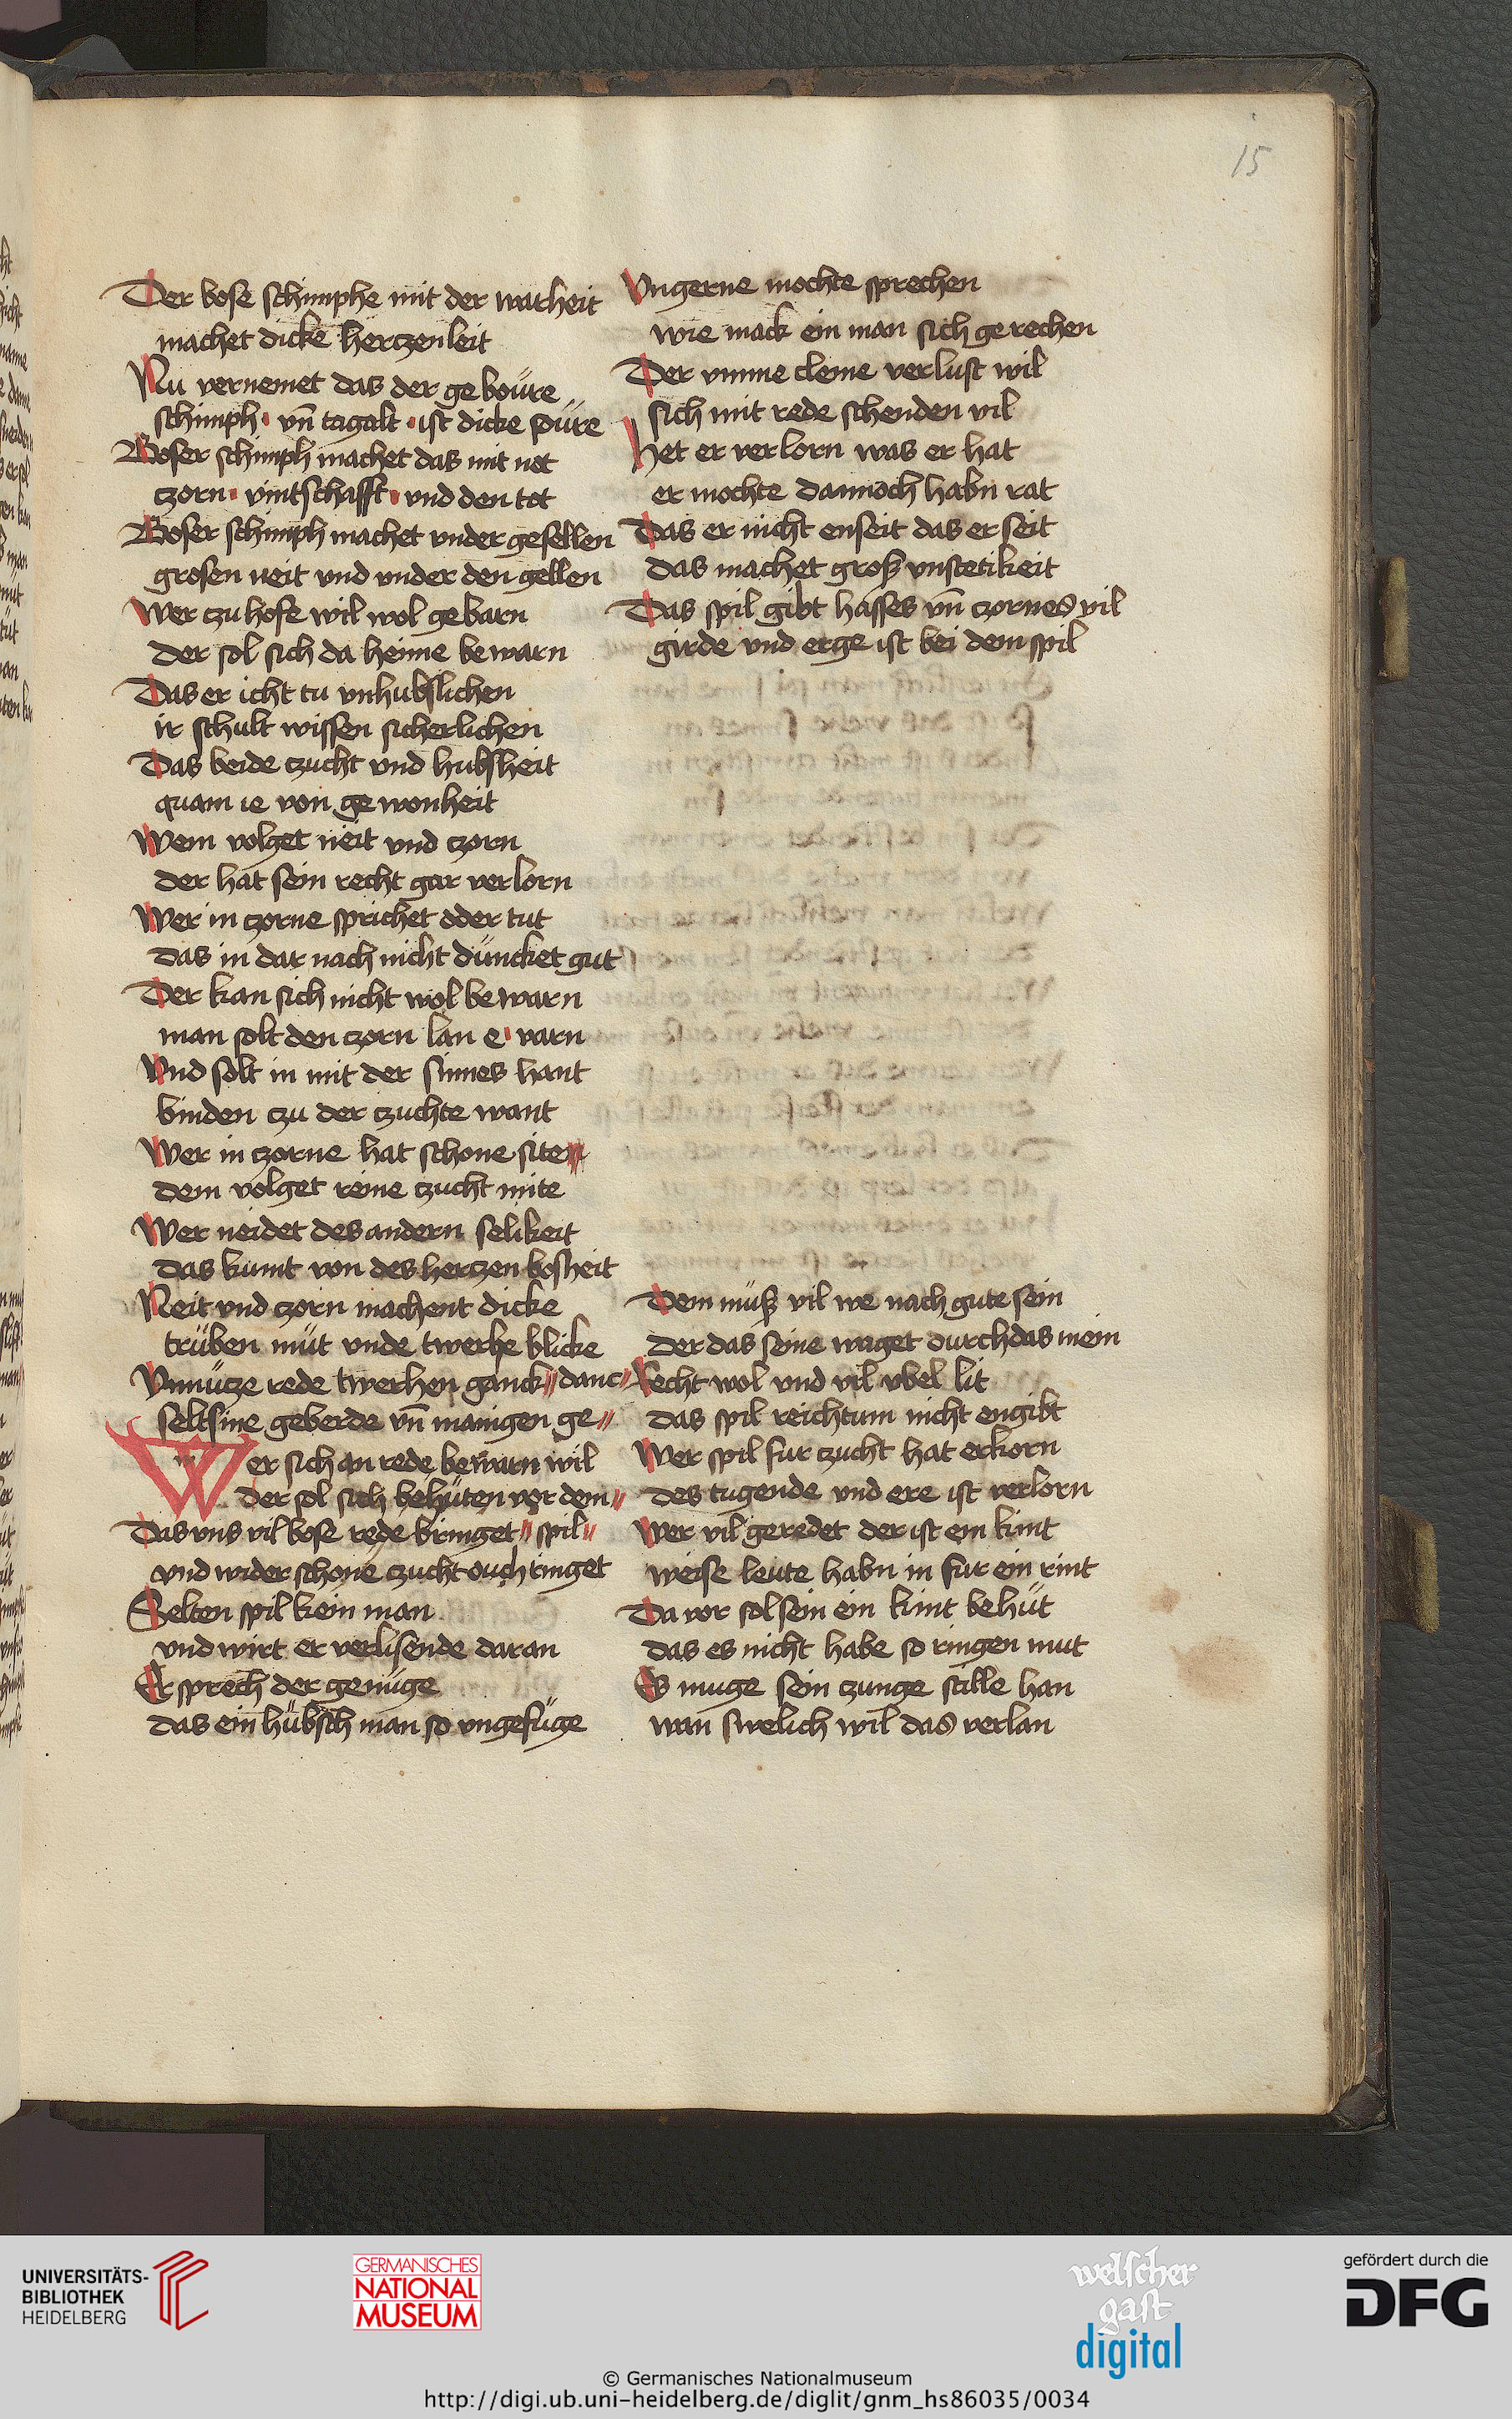 15
Der bose schimphe mit der warheit
machet dicke herczenleit
Nu vernemet das der geboüre
schimph · vn̄ tagalt · ist dicke süre
Boser schimph machet das mit not
czorn · vintschafft · vnd den tot
Boser schimph machet vnder gesellen
grosen neit vnd vnder den gellen
Wer czu hofe wil wol gebarn
der sol sich da heime bewarn
Das er icht tu vnhubslichen
ir schult wissen sicherlichen
Das beide czucht vnd hubsheit
quam ie von gewonheit
Wem volget neit vnd czorn
der hat sein recht gar verlorn
Wer in czorne sprichet oder tut
das in dar nach nicht düncket gut
Der kan sich nicht wol bewarn
man solt den czorn lan e · varn
Vnd solt in mit der sinnes hant
binden czu der czuchte want
Wer in czorne hat schone siten
dem volget reine czucht mite
Wer neidet des andern selikeit
das kumt von des herczen bosheit
Neit vnd czorn machent dicke
trüben müt vnde twerhe blicke
Vnnücze rede twerhen ganck // danc //
seltsine geberde vn̄ manigen ge //
Wer sich an rede bewarn wil
der sol sich behüten vor dem //
Das vns vil bose rede bringet // spil //
vnd wider schone czucht ouch ringet
Selten spil kein man
vnd wirt er verlisende daran
Er sprech der genüge
das ein hübsch man so vngefüge
Vngerne mochte sprechen
wie mack ein man sich gerechen
Der vmme cleine verlust wil
sich mit rede schenden vil
Het er verlorn was er hat
er mochte dannoch habn rat
Das er nicht enseit das er seit
das machet groß vnstetikeit
Das spil gibt hasses vn̄ czornes vil
girde vnd erge ist bei dem spil
Dem müß vil we nach gute sein
der das seine waget durch das mein
Recht wol vnd vil vbel lit
das spil reichtum nicht engibt
Wer spil fur czucht hat erkorn
des tugende vnd ere ist verlorn
Wer vil geredet der ist ein kint
weise leute habn in fur ein rint
Da vor sol sein ein kint behüt
das es nicht habe so ringen mut
Es muge sein czunge stille han
wan swelich wil das verlan
UNIVERSITÄTS-
BIBLIOTHEK
HEIDELBERG
GERMANISCHES
NATIONAL
MUSEUM
welscher
gast
digital
gefördert durch die
DFG
© Germanisches Nationalmuseum
http://digi.ub.uni-heidelberg.de/diglit/gnm_hs86035/0034